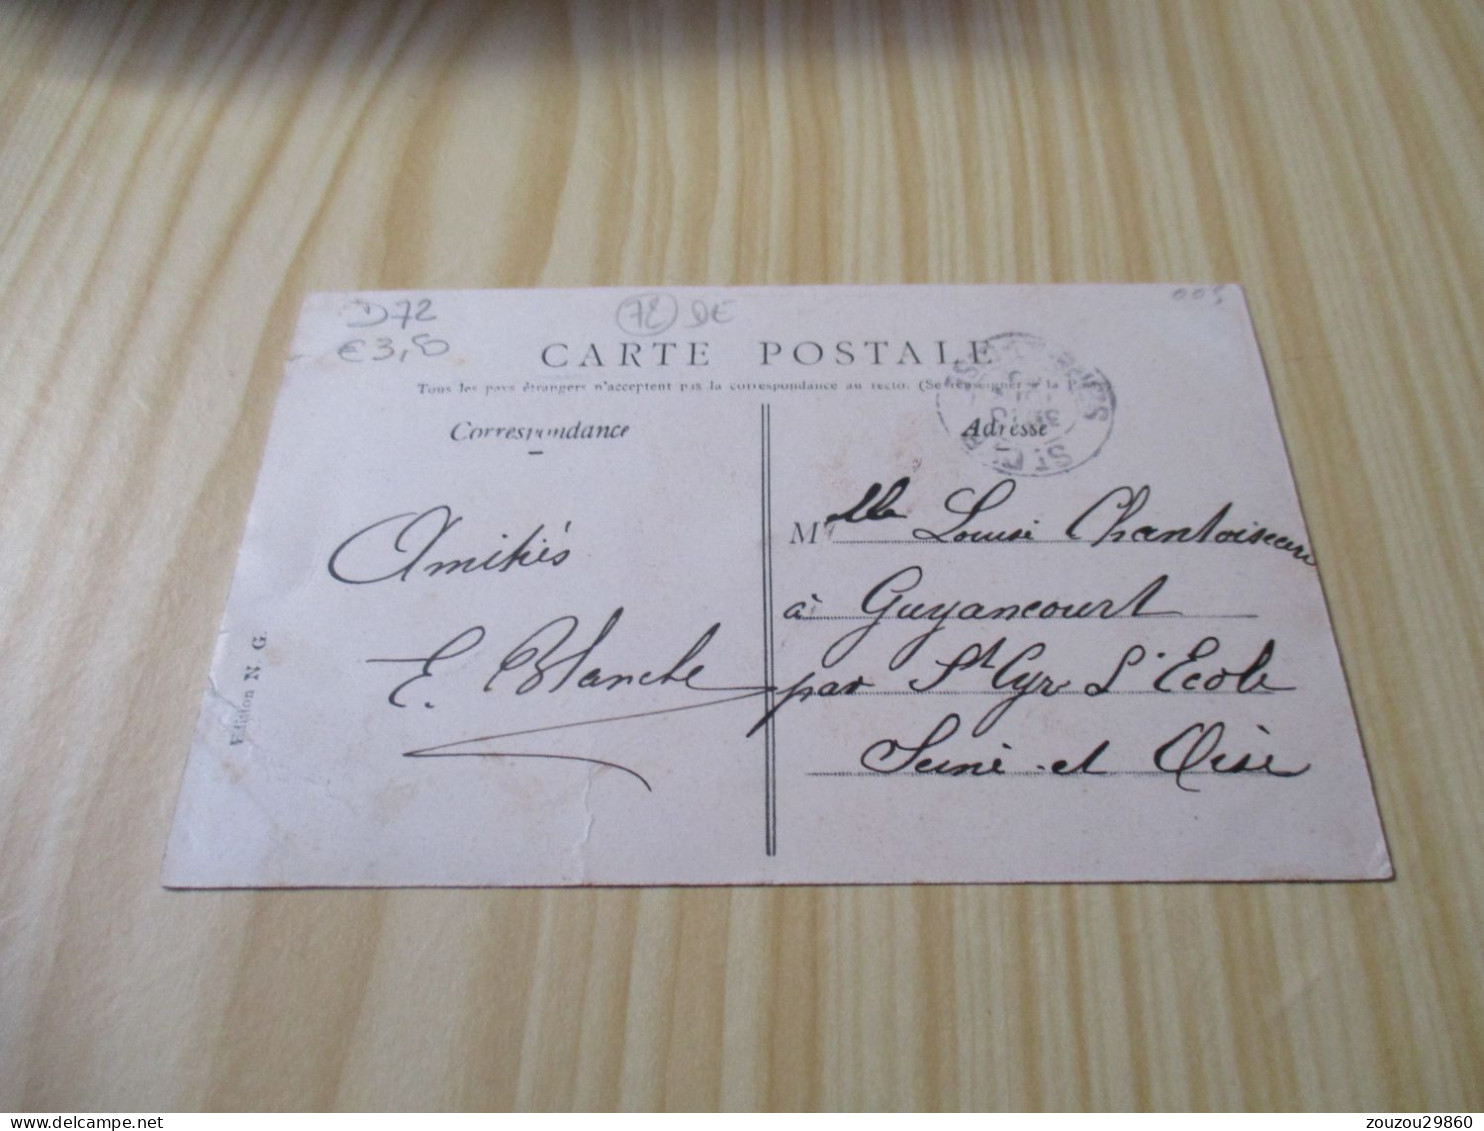 D72
€3,50
72 DE
005
CARTE POSTALE
Tous les pays étrangers n'acceptent pas la correspondance au recto. (Se renseigner à la P
Correspondance
Adresse
Amitiés
E. Blanche
Edition N. G.
Mlle Louise Chantoiseau
à Guyancourt
par St Cyr L'Ecole
Seine et Oise
zouzou29860